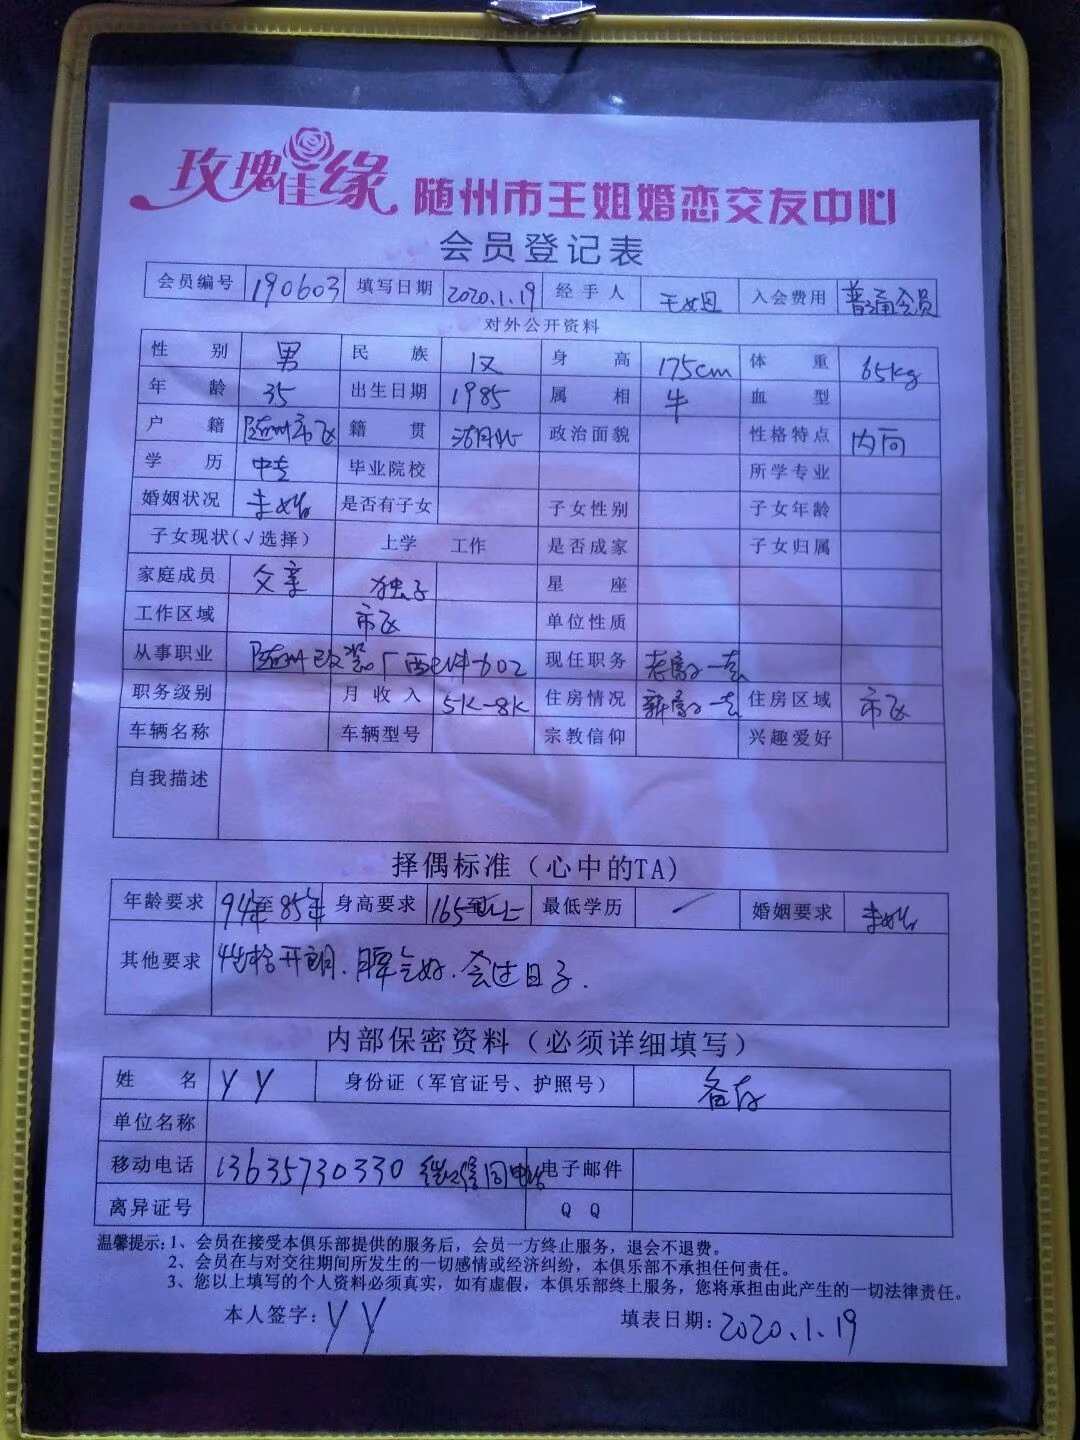 玫瑰佳缘 随州市王姐婚恋交友中心
会员登记表
会员编号 190603 填写日期 2020.1.19 经手人 王姐 入会费用 普通会员
对外公开资料
性别 男 民族 汉 身高 175cm 体重 65kg
年龄 35 出生日期 1985 属相 牛 血型
户籍 随州市区 籍贯 湖北 政治面貌 性格特点 内向
学历 中专 毕业院校 所学专业
婚姻状况 未婚 是否有子女 子女性别 子女年龄
子女现状(√选择) 上学 工作 是否成家 子女归属
家庭成员 父亲 独子 星座
工作区域 市区 单位性质
从事职业 随州改装厂 现任职务 老家一套
职务级别 月收入 5K-8K 住房情况 新家一套 住房区域 市区
车辆名称 车辆型号 宗教信仰 兴趣爱好
自我描述
择偶标准（心中的TA)
年龄要求 94年至85年 身高要求 165至以上 最低学历 婚姻要求 未婚
其他要求 性格开朗.脾气好.会过日子.
内部保密资料（必须详细填写）
姓名 YY 身份证（军官证号、护照号） 备存
单位名称
移动电话 13635730330 微信同电话 电子邮件
离异证号 QQ
温馨提示:1、会员在接受本俱乐部提供的服务后，会员一方终止服务，退会不退费。
2、会员在与对交往期间所发生的一切感情或经济纠纷，本俱乐部不承担任何责任。
3、您以上填写的个人资料必须真实，如有虚假，本俱乐部终上服务，您将承担由此产生的一切法律责任。
本人签字: YY 填表日期: 2020.1.19